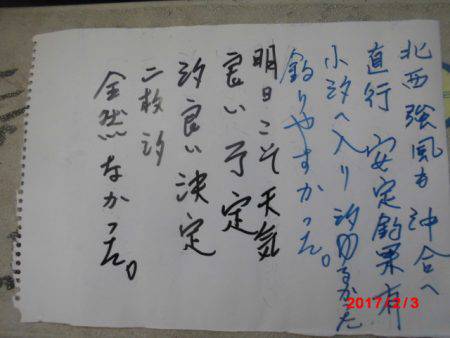 北西強風も沖合へ
直行 安定釣果有
小汐へ入り汐ゆるかた
釣りやすかった。
明日こそ天気
良い予定
汐良い決定
二枚汐
全然なかった。
2017/2/3